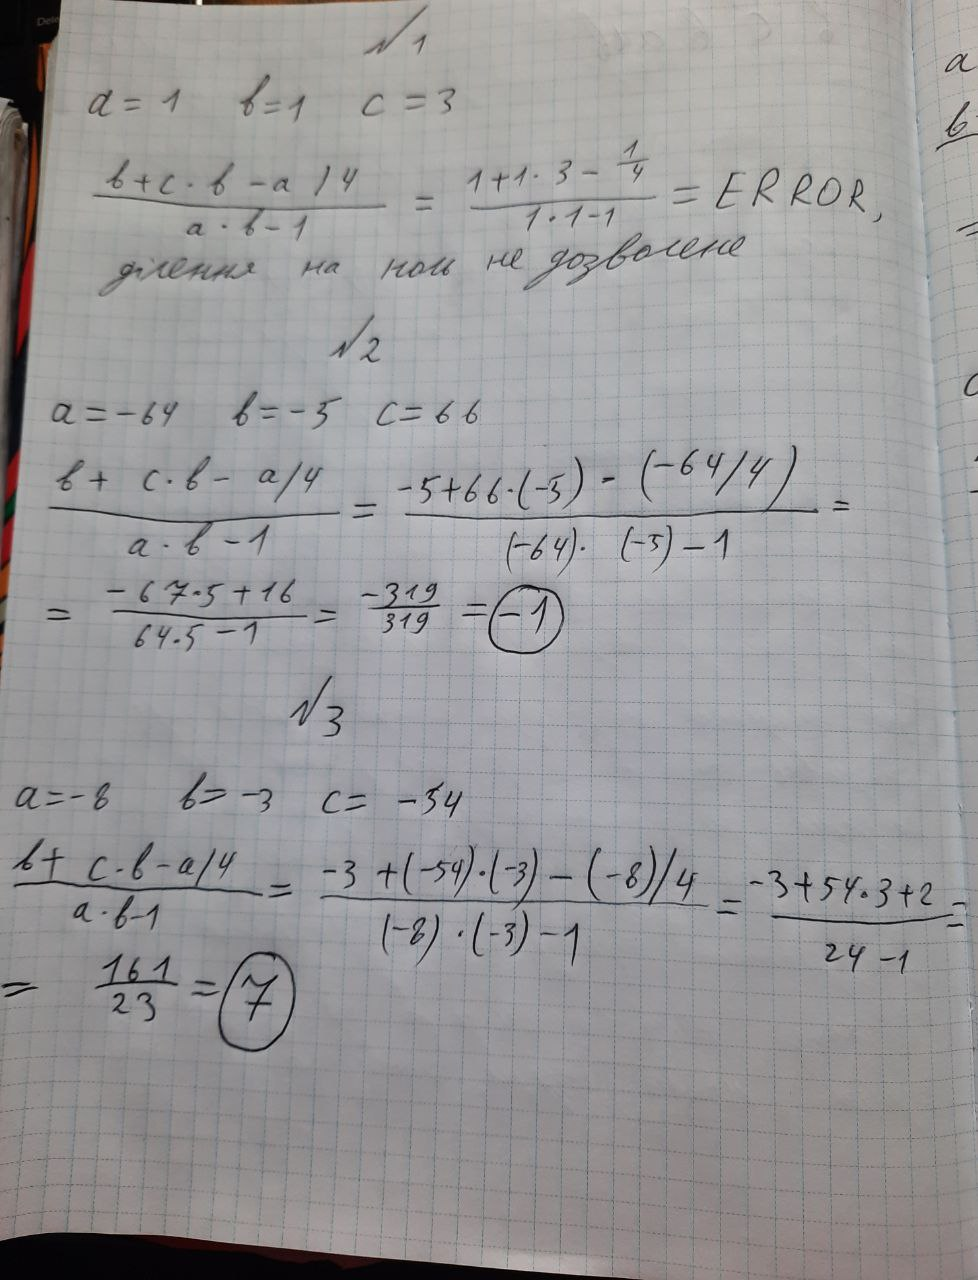 Dele
№1
a = 1 b = 1 c = 3
(b + c · b - a / 4) / (a · b - 1) = (1 + 1 · 3 - 1/4) / (1 · 1 - 1) = ERROR,
ділення на ноль не дозволене
№2
a = -64 b = -5 c = 66
(b + c · b - a/4) / (a · b - 1) = (-5 + 66 · (-5) - (-64/4)) / ((-64) · (-5) - 1) =
= (-67 · 5 + 16) / (64 · 5 - 1) = -319/319 = -1
№3
a = -8 b = -3 c = -54
(b + c · b - a/4) / (a · b - 1) = (-3 + (-54) · (-3) - (-8)/4) / ((-8) · (-3) - 1) = (-3 + 54 · 3 + 2) / (24 - 1) =
= 161/23 = 7
a
b